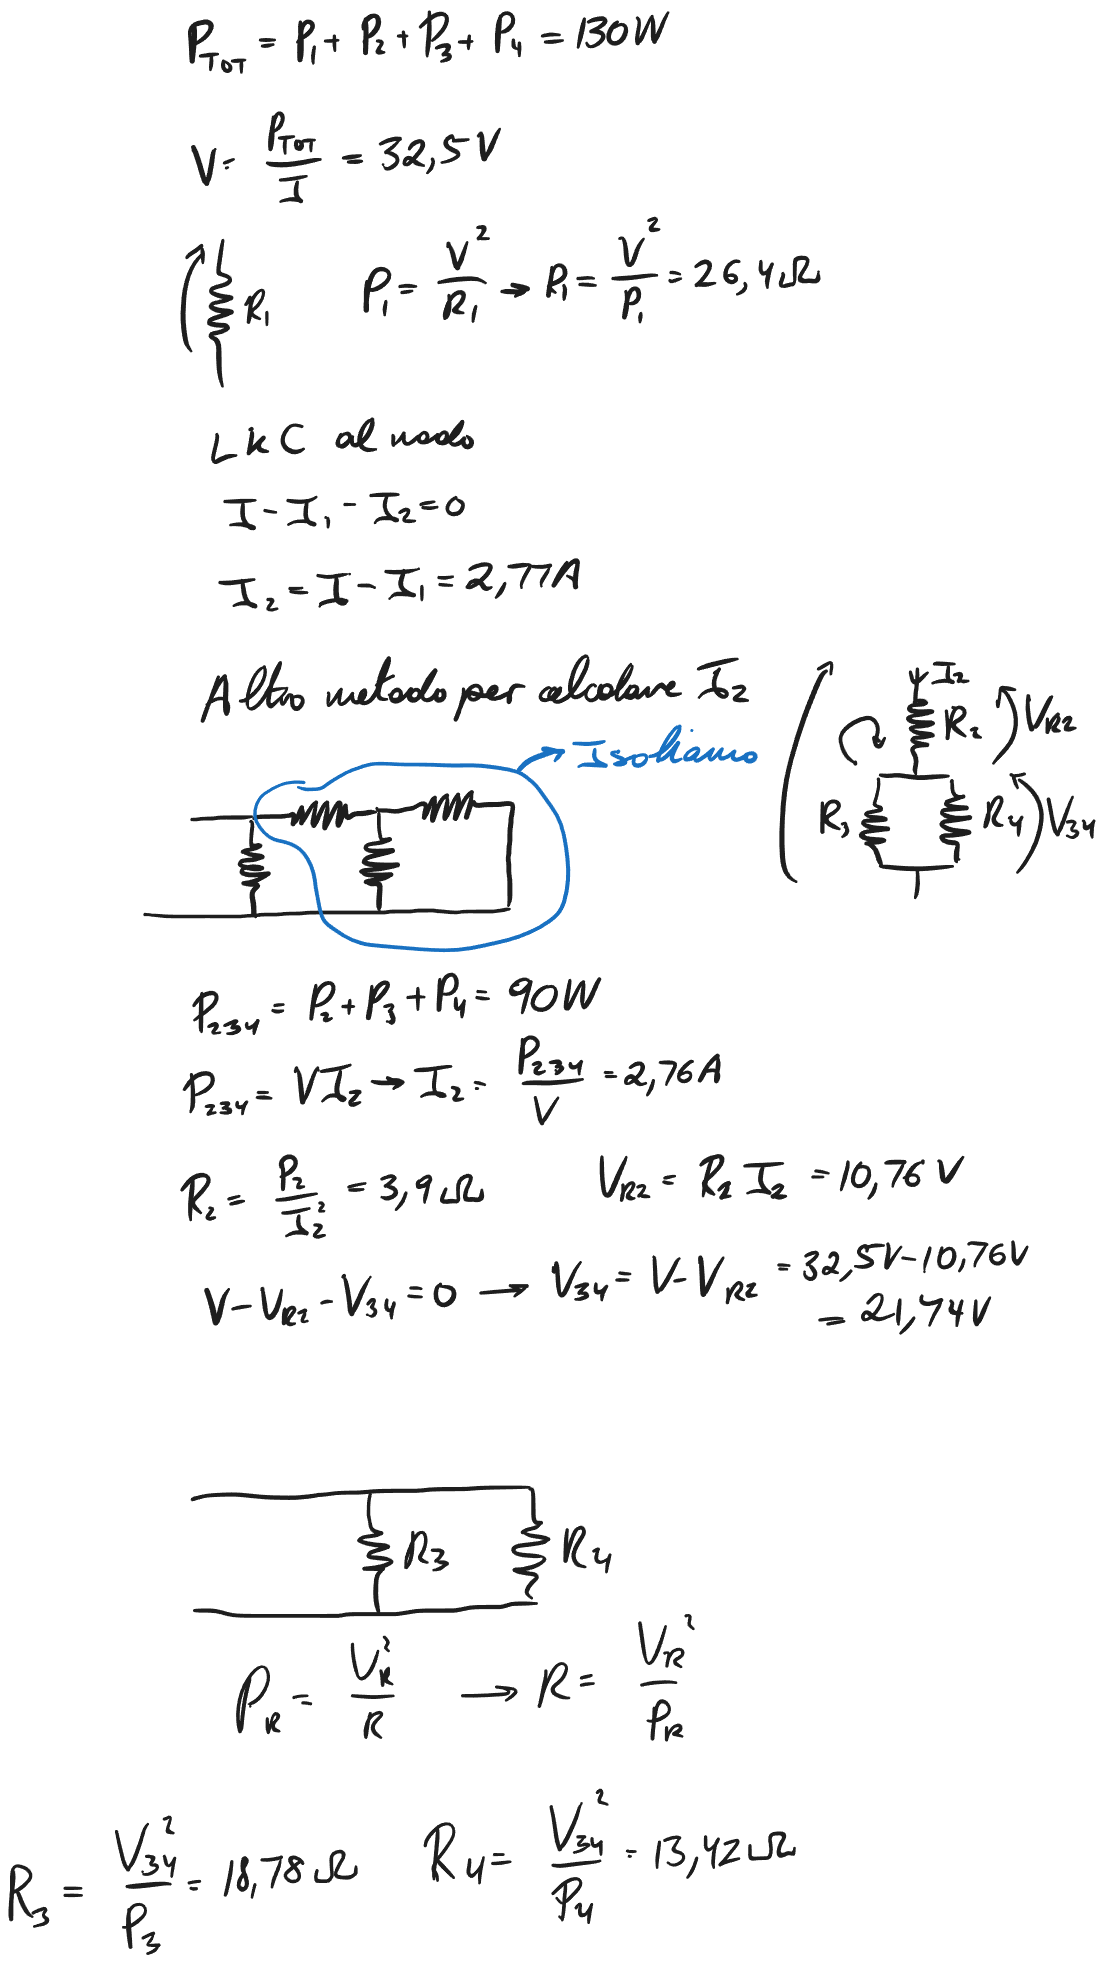 P_TOT = P₁ + P₂ + P₃ + P₄ = 130W
V = P_TOT / I = 32,5V
R₁
P₁ = V² / R₁ → R₁ = V² / P₁ = 26,4Ω
LKC al nodo
I - I₁ - I₂ = 0
I₂ = I - I₁ = 2,77A
Altro metodo per calcolare I₂
Isoliamo
I₂
R₂ V_R2
R₃ R₄ V₃₄
P₂₃₄ = P₂ + P₃ + P₄ = 90W
P₂₃₄ = VI₂ → I₂ = P₂₃₄ / V = 2,76A
R₂ = P₂ / I₂² = 3,9Ω V_R2 = R₂ I₂ = 10,76V
V - V_R2 - V₃₄ = 0 → V₃₄ = V - V_R2 = 32,5V - 10,76V
= 21,74V
R₃ R₄
P_R = V_R² / R → R = V_R² / P_R
R₃ = V₃₄² / P₃ = 18,78Ω R₄ = V₃₄² / P₄ = 13,42Ω